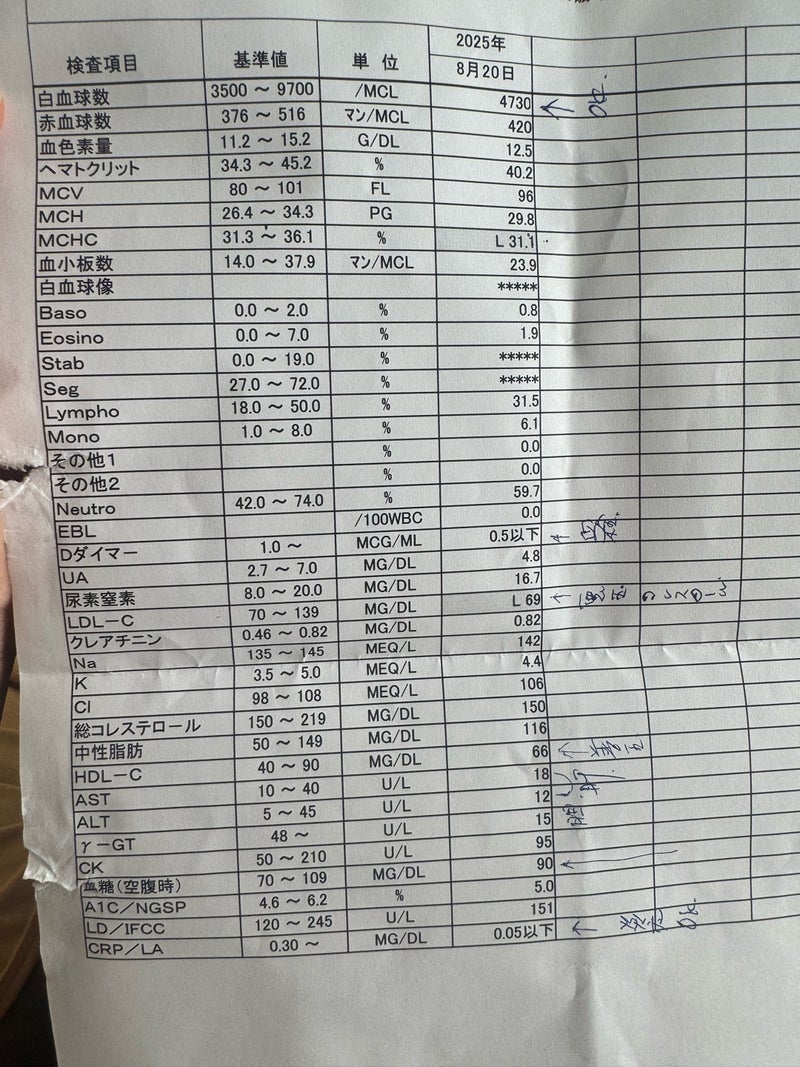 検査項目 基準値 単位 2025年
8月20日
白血球数 3500 ～ 9700 /MCL 4730 ← OK.
赤血球数 376 ～ 516 マン/MCL 420
血色素量 11.2 ～ 15.2 G/DL 12.5
ヘマトクリット 34.3 ～ 45.2 % 40.2
MCV 80 ～ 101 FL 96
MCH 26.4 ～ 34.3 PG 29.8
MCHC 31.3 ～ 36.1 % L 31.1
血小板数 14.0 ～ 37.9 マン/MCL 23.9
白血球像 *****
Baso 0.0 ～ 2.0 % 0.8
Eosino 0.0 ～ 7.0 % 1.9
Stab 0.0 ～ 19.0 % *****
Seg 27.0 ～ 72.0 % *****
Lympho 18.0 ～ 50.0 % 31.5
Mono 1.0 ～ 8.0 % 6.1
その他1 % 0.0
その他2 % 0.0
Neutro 42.0 ～ 74.0 % 59.7
EBL /100WBC 0.0
Dダイマー 1.0 ～ MCG/ML 0.5以下
UA 2.7 ～ 7.0 MG/DL 4.8
尿素窒素 8.0 ～ 20.0 MG/DL 16.7
LDL－C 70 ～ 139 MG/DL L 69
クレアチニン 0.46 ～ 0.82 MG/DL 0.82
Na 135 ～ 145 MEQ/L 142
K 3.5 ～ 5.0 MEQ/L 4.4
Cl 98 ～ 108 MEQ/L 106
総コレステロール 150 ～ 219 MG/DL 150
中性脂肪 50 ～ 149 MG/DL 116
HDL－C 40 ～ 90 MG/DL 66
AST 10 ～ 40 U/L 18
ALT 5 ～ 45 U/L 12
γ－GT 48 ～ U/L 15
CK 50 ～ 210 U/L 95
血糖(空腹時) 70 ～ 109 MG/DL 90
A1C／NGSP 4.6 ～ 6.2 % 5.0
LD／IFCC 120 ～ 245 U/L 151
CRP／LA 0.30 ～ MG/DL 0.05以下 ← OK.